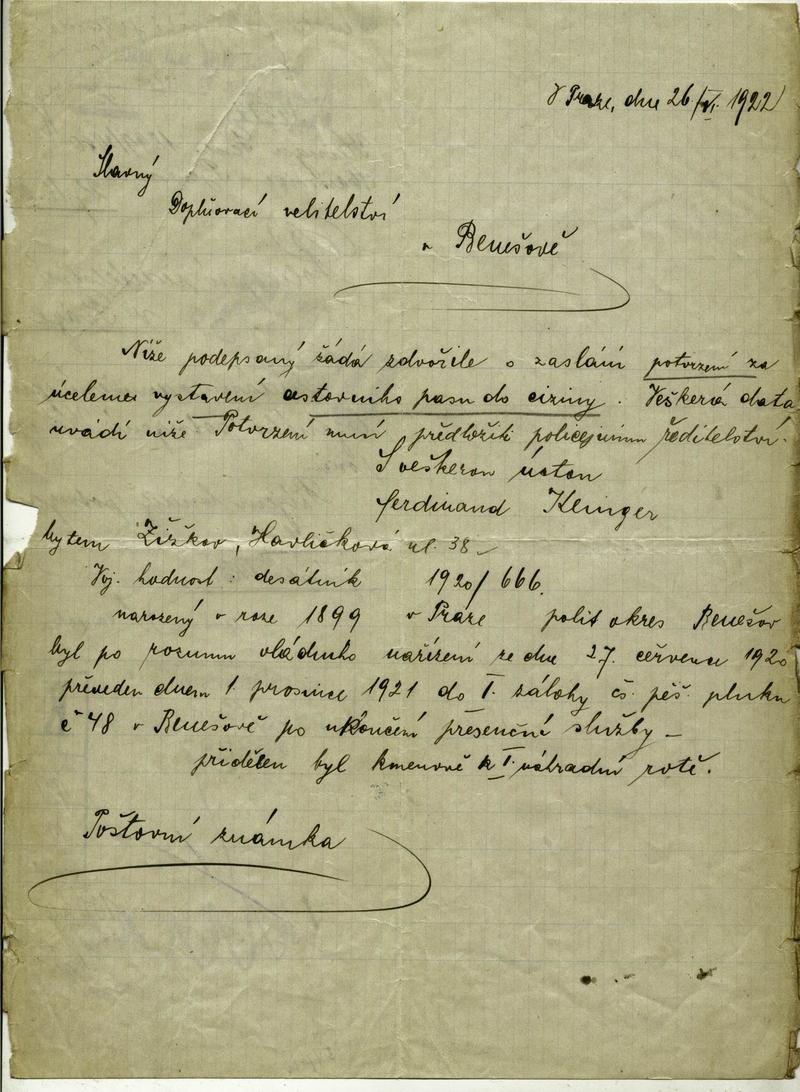 V Praze, dne 26/VI. 1922
Slavný
Doplňovací velitelství
v Benešově
Níže podepsaný žádá zdvořile o zaslání potvrzení za
účelem vystavení cestovního pasu do ciziny. Veškerá data
uvádí níže Potvrzení musí předložiti policejnímu ředitelství.
S veškerou úctou
Ferdinand Klinger
bytem Žižkov, Havlíčková ul. 38 –
Voj. hodnost: desátník 1920/666.
narozený v roce 1899 v Praze polit okres Benešov
byl po rozumu vládního nařízení ze dne 27. července 1920
převeden dnem 1 prosince 1921 do I. zálohy čs. pěš. pluku
č 48 v Benešově po ukončení presenční služby –
přidělen byl kmenově k I. náhradní rotě.
Poštovní známka